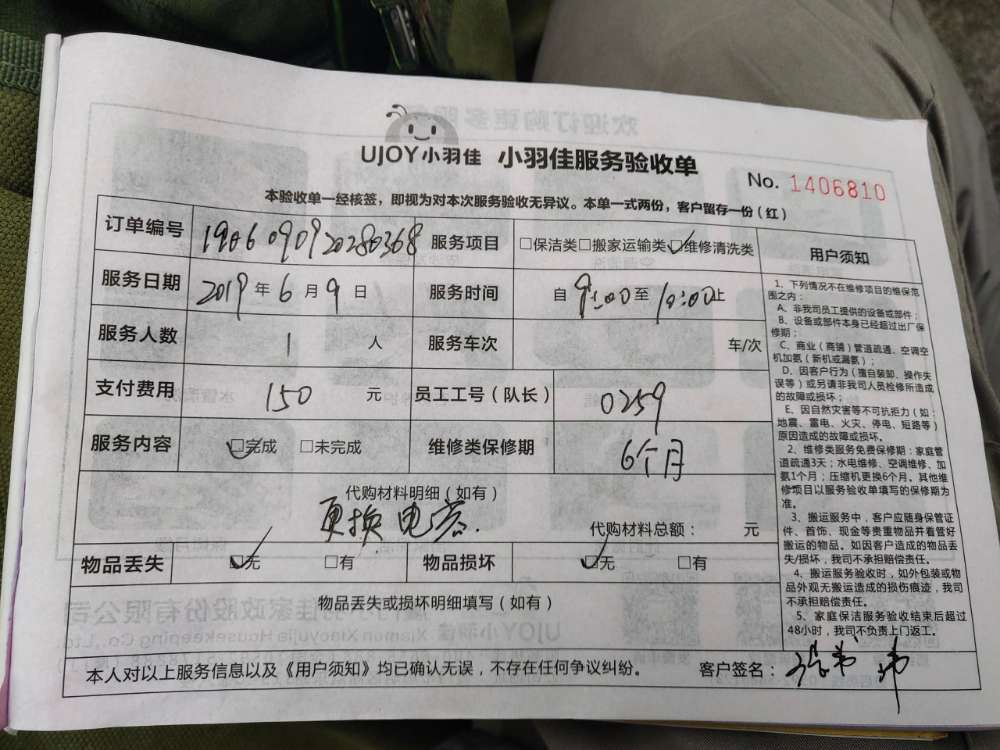 UJOY小羽佳 小羽佳服务验收单
No. 1406810
本验收单一经核签，即视为对本次服务验收无异议。本单一式两份，客户留存一份（红）
订单编号 1906090920280368 服务项目 □保洁类□搬家运输类☑维修清洗类
服务日期 2019年6月9日 服务时间 自9:00至10:00止
服务人数 1人 服务车次 车/次
支付费用 150元 员工工号（队长） 0259
服务内容 ☑完成 □未完成 维修类保修期 6个月
代购材料明细（如有）
更换电容. 代购材料总额： 元
物品丢失 ☑无 □有 物品损坏 ☑无 □有
物品丢失或损坏明细填写（如有）
用户须知
1、下列情况不在维修项目的维保范
围之内：
A、非我司员工提供的设备或部件；
B、设备或部件本身已经超过出厂保
修期；
C、商业（商铺）管道疏通、空调空
机加氨（新机或漏氨）；
D、因客户行为（擅自装卸、操作失
误等）或另请非我司人员检修所造成
的故障或损坏；
E、因自然灾害等不可抗拒力（如：
地震、雷电、火灾、停电、短路等）
原因造成的故障或损坏。
2、维修类服务免费保修期：家庭管
道疏通3天；水电维修、空调维修、加
氨1个月；压缩机更换6个月。其他维
修项目以服务验收单填写的保修期为
准。
3、搬运服务中，客户应随身保管证
件、首饰、现金等贵重物品并看管好
搬运的物品。如因客户造成的物品丢
失/损坏，我司不承担赔偿责任。
4、搬运服务验收时，如外包装或物
品外观无搬运造成的损伤痕迹，我司
不承担赔偿责任。
5、家庭保洁服务验收结束后超过
48小时，我司不负责上门返工。
本人对以上服务信息以及《用户须知》均已确认无误，不存在任何争议纠纷。 客户签名：